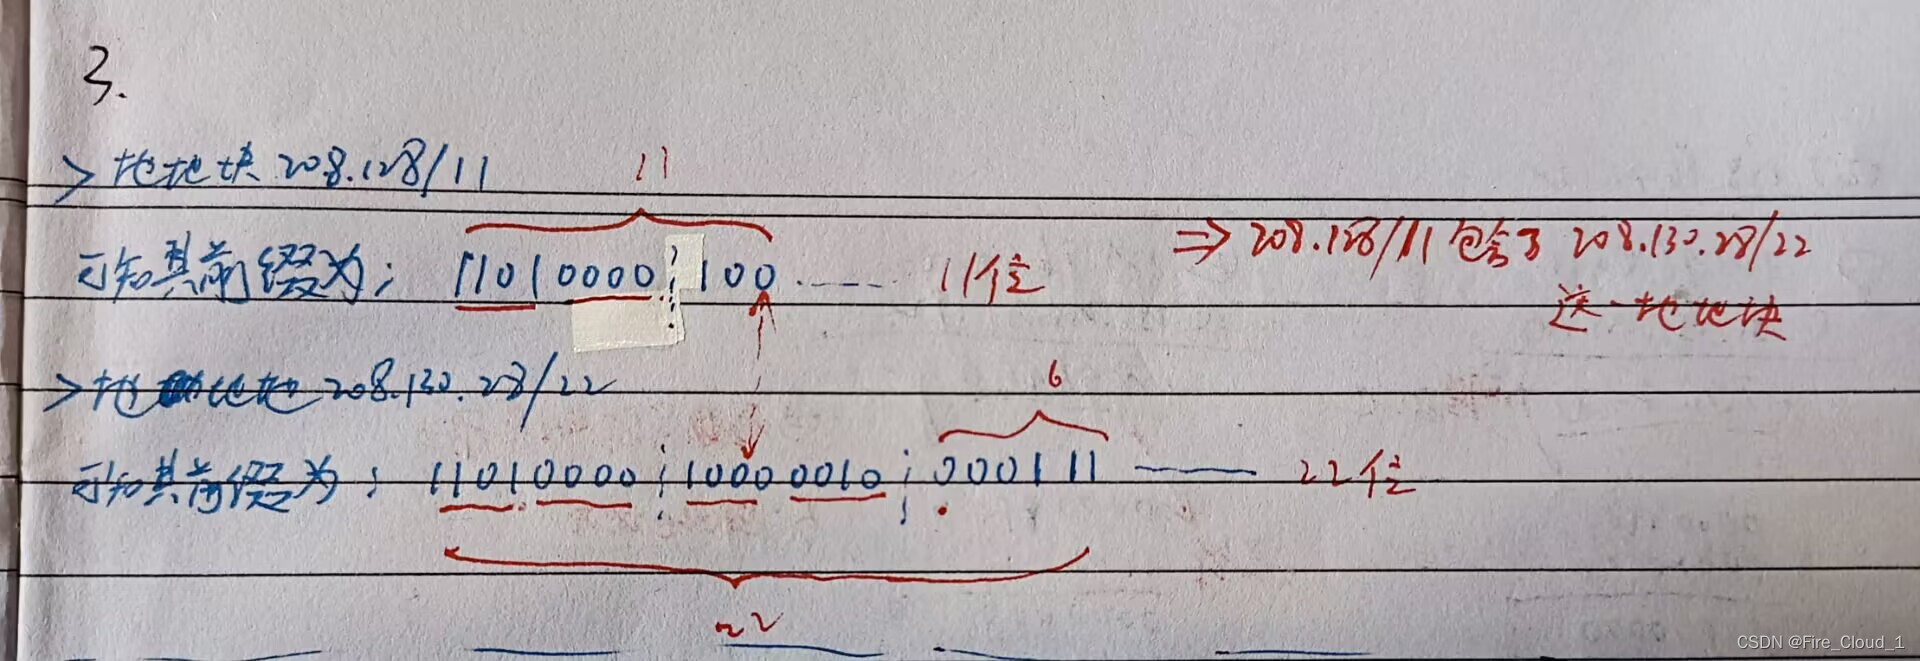 3.
> 地地块 208.128/11
11
可知其前缀为: 11010000 100 ...... 11位
⇒ 208.128/11 包含了 208.130.28/22
这一地地块
> 地地 208.130.28/22
6
可知其前缀为: 11010000 1000 0010 000111 —— 22位
22
CSDN @Fire_Cloud_1